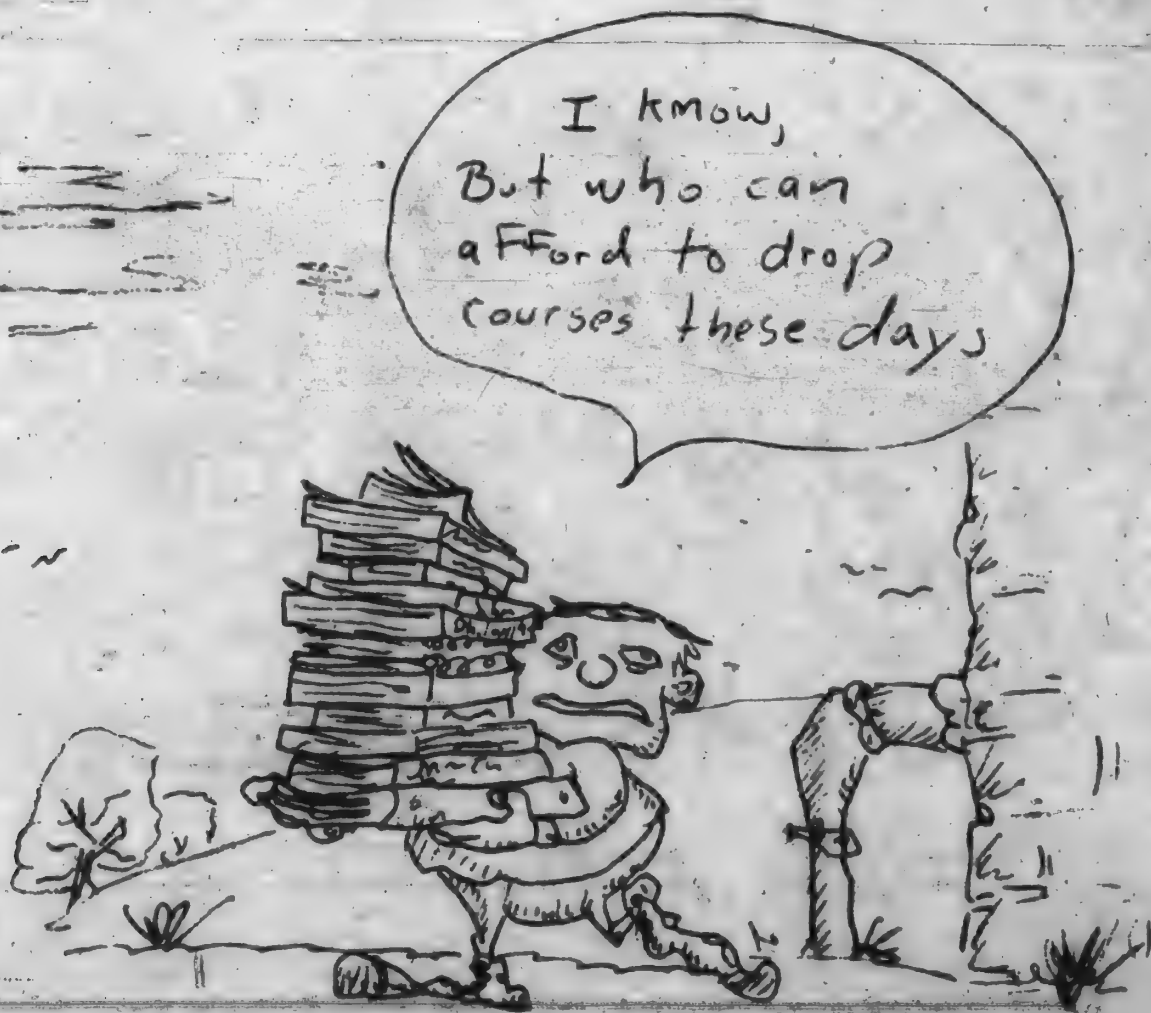 I know,
But who can
afford to drop
courses these days